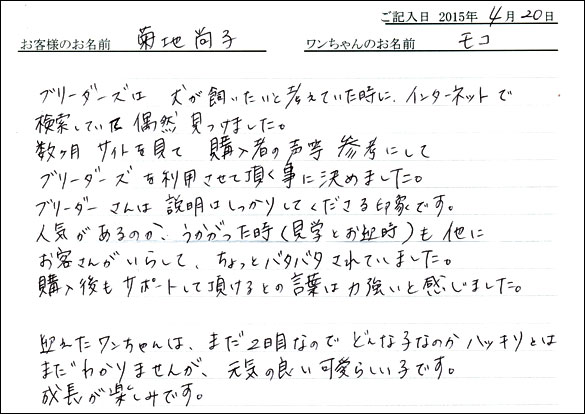 ご記入日 2015年 4月 20日
お客様のお名前 菊地尚子 ワンちゃんのお名前 モコ
ブリーダーズは 犬が飼いたいと考えていた時に、インターネットで
検索していて 偶然 見つけました。
数ヶ月 サイトを見て 購入者の声等 参考にして
ブリーダーズを利用させて頂く事に決めました。
ブリーダーさんは 説明はしっかりしてくださる印象です。
人気があるのか、うかがった時(見学とお迎時)も 他に
お客さんがいらして、ちょっとバタバタされていました。
購入後もサポートして頂けるとの言葉は力強いと感じました。
迎えたワンちゃんは、まだ2日目なので どんな子なのか ハッキリとは
まだわかりませんが、元気の良い可愛らしい子です。
成長が楽しみです。